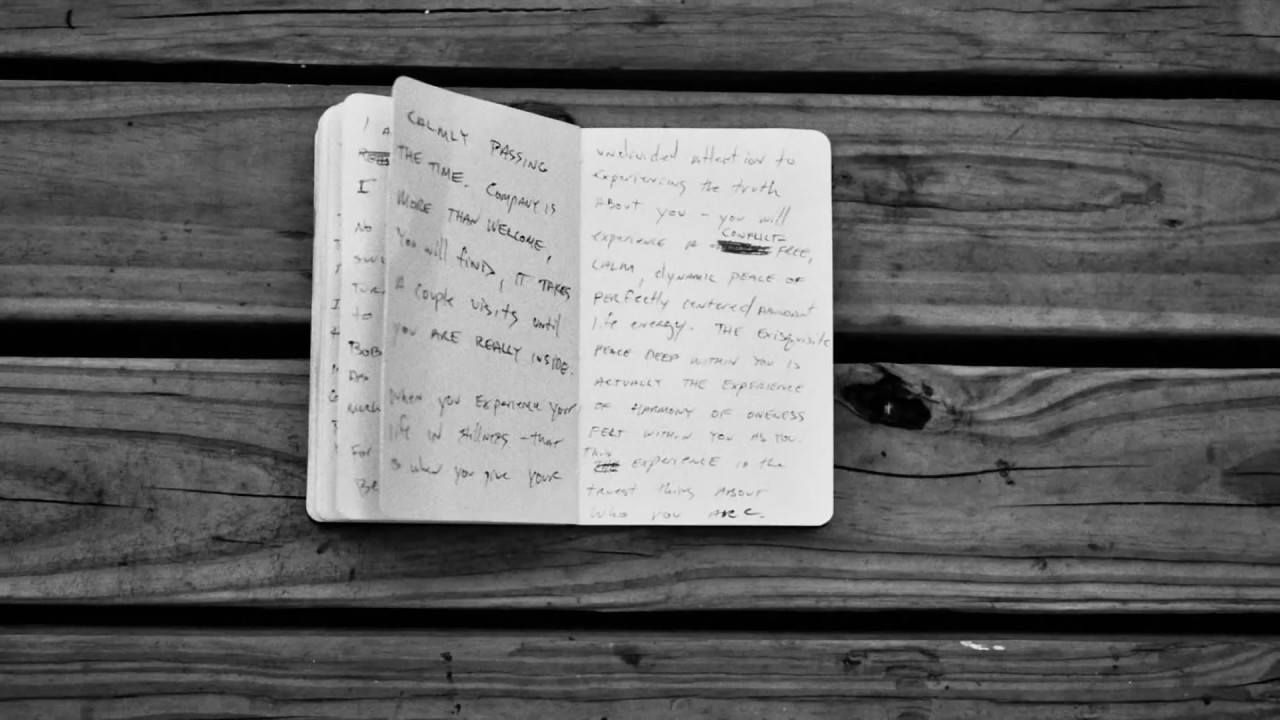 I
No
to
BOB
CALMLY PASSING
THE TIME. COMPANY IS
MORE THAN WELCOME,
You will find, IT TAKES
A couple visits until
you ARE REALLY INSIDE.
When you Experience your
life IN stillness - that
is when you give your
undivided attention to
experiencing the truth
About you - you will
experience A CONFLICT-FREE,
CALM, dynamic peace of
perfectly centered
life energy. THE Exisquisite
PEACE DEEP WITHIN YOU IS
ACTUALLY THE EXPERIENCE
OF HARMONY OF ONENESS
FELT WITHIN YOU AS YOU.
This experience is the
truest thing About
Who you ARE.